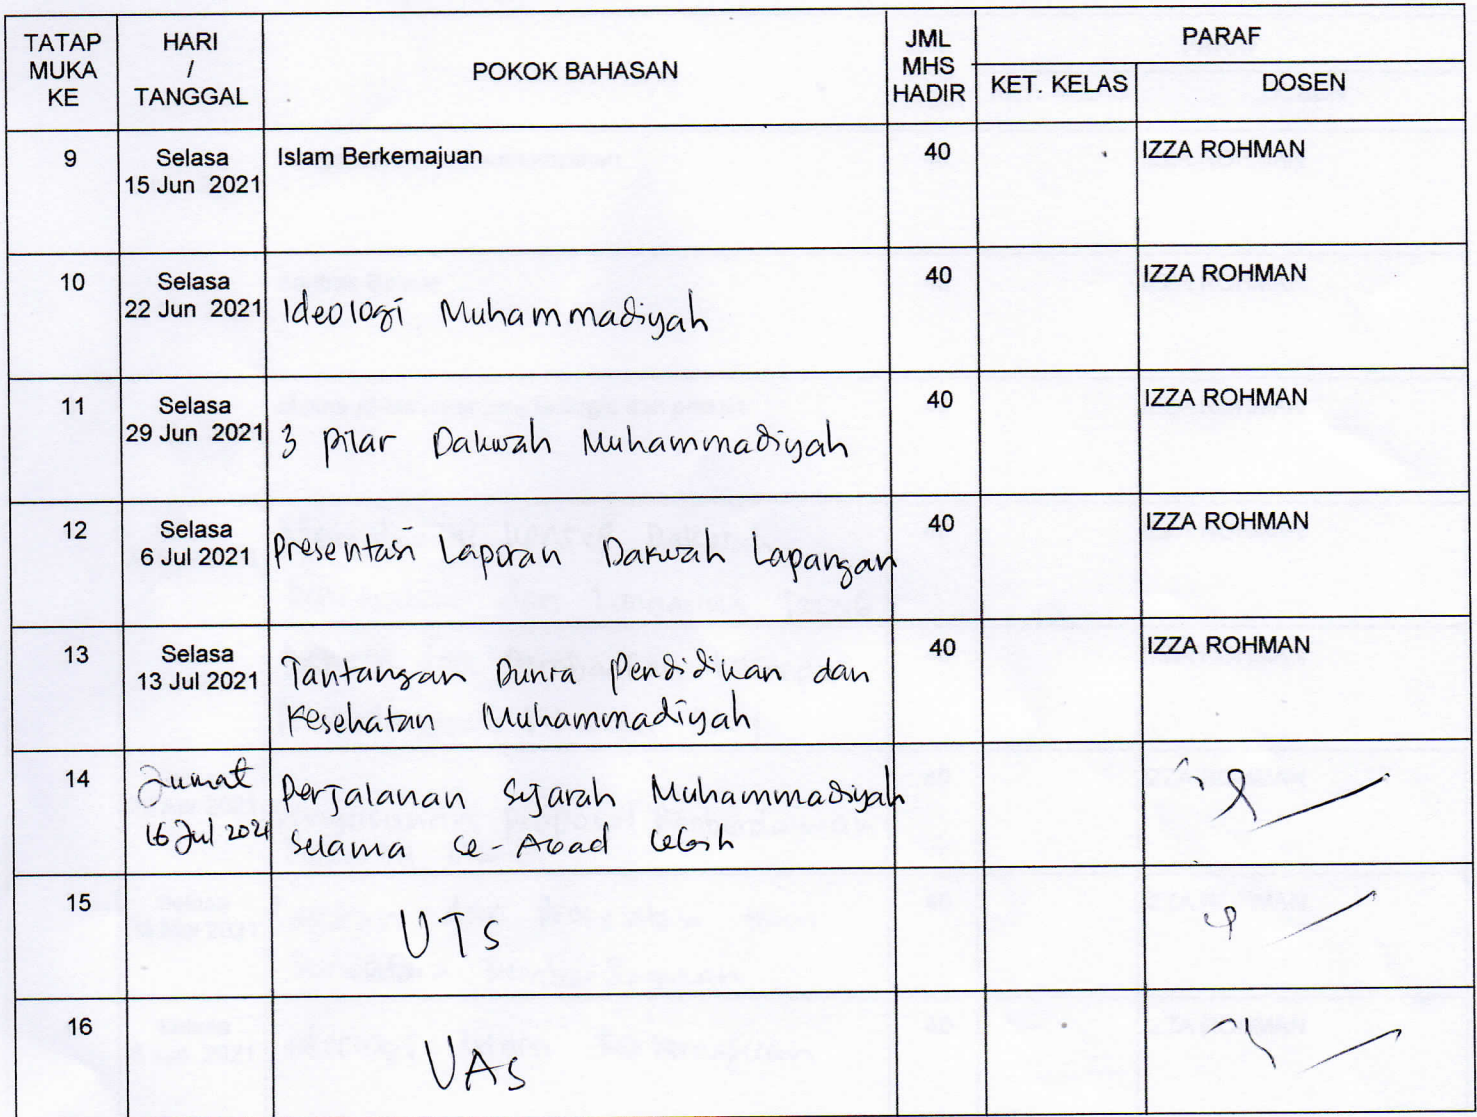 TATAP MUKA KE
HARI / TANGGAL
POKOK BAHASAN
JML MHS HADIR
PARAF
KET. KELAS
DOSEN
9
Selasa
15 Jun 2021
Islam Berkemajuan
40
IZZA ROHMAN
10
Selasa
22 Jun 2021
Ideologi Muhammadiyah
40
IZZA ROHMAN
11
Selasa
29 Jun 2021
3 pilar Dakwah Muhammadiyah
40
IZZA ROHMAN
12
Selasa
6 Jul 2021
Presentasi Laporan Dakwah Lapangan
40
IZZA ROHMAN
13
Selasa
13 Jul 2021
Tantangan Dunia Pendidikan dan
Kesehatan Muhammadiyah
40
IZZA ROHMAN
14
Jumat
16 Jul 2021
Perjalanan Sejarah Muhammadiyah
Selama se-Abad lebih
15
UTS
16
UAS